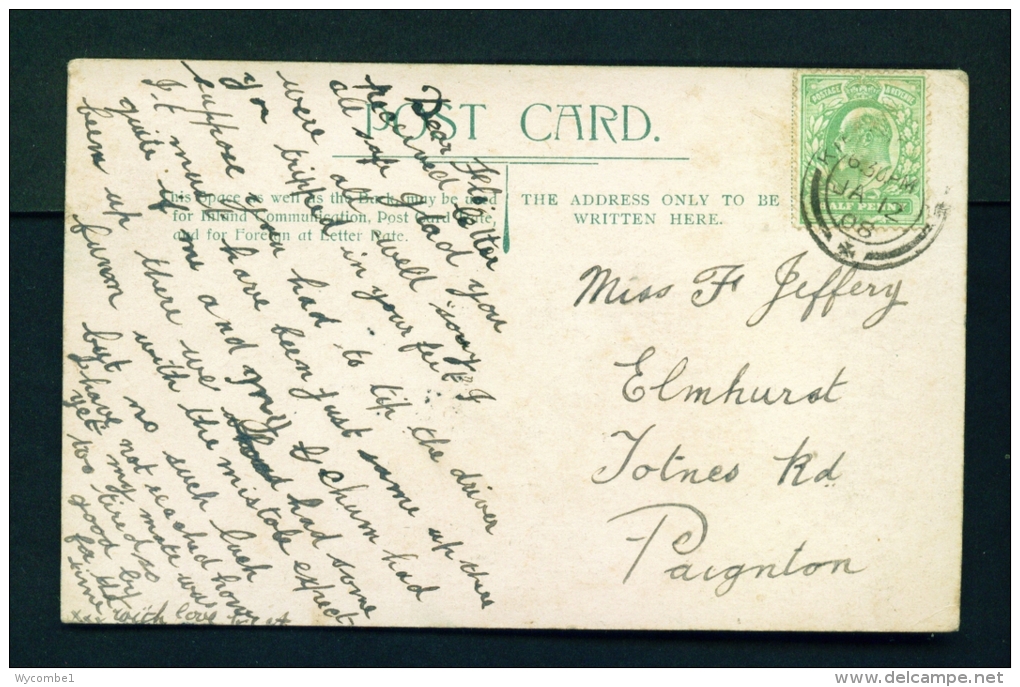 POST CARD.
This Space as well as the Back may be used
for Inland Communication, Post Card Rate,
and for Foreign at Letter Rate.
THE ADDRESS ONLY TO BE
WRITTEN HERE.
POSTAGE & REVENUE
HALF PENNY
6.30PM
JA
08
Dear
received letter
all safe glad you
were all well
you tipped in your feet
suppose you had to tip the driver
I must have been just same up there
quite if me and my chum had
been up there we had some
funn with the mistake expect
but no such luck
I have not reached home
yet my mate was
too tired so
good by
for the
time
with love
Miss F Jeffery
Elmhurst
Totnes Rd
Paignton
Wycombe1
delcampe.net